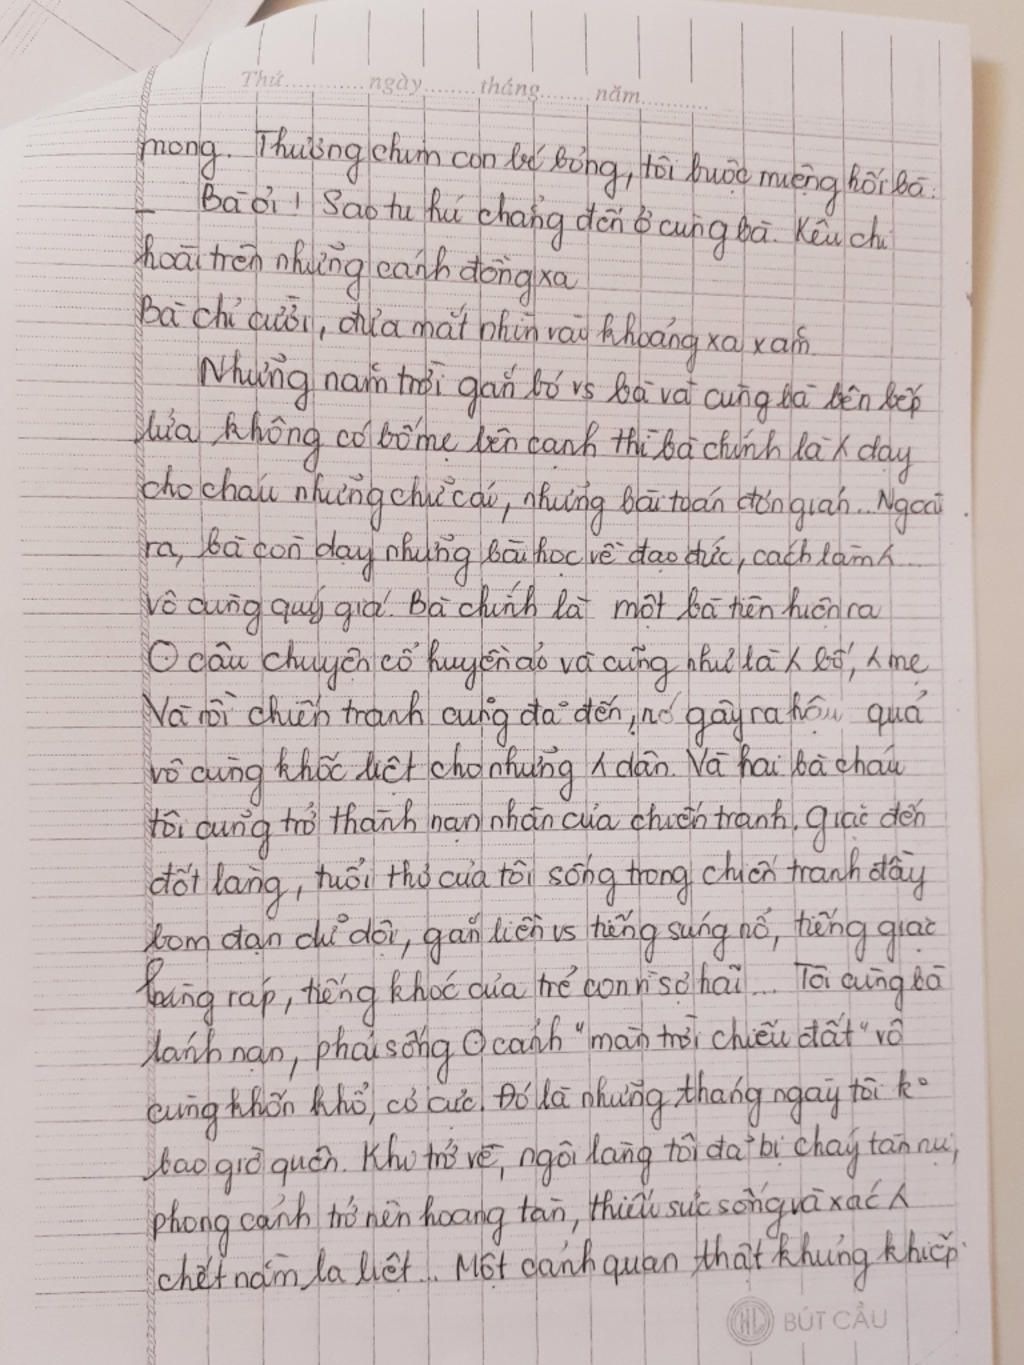 Thứ............ngày........tháng........năm...........
mong. Thương chim con bé bỏng, tôi buộc miệng hỏi bà:
_ Bà ơi! Sao tu hú chẳng đến ở cùng bà. Kêu chi
hoài trên những cánh đồng xa
Bà chỉ cười, đưa mắt nhìn vào khoảng xa xăm
Những năm trời gắn bó vs bà và cùng bà bên bếp
lửa không có bố mẹ bên cạnh thì bà chính là ʎ dạy
cho cháu những chữ cái, những bài toán đơn giản... Ngoài
ra, bà còn dạy những bài học về đạo đức, cách làm ʎ...
vô cùng quý giá. Bà chính là một bà tiên hiện ra
⊙ câu chuyện cổ huyền ảo và cũng như là ʎ bố, ʎ mẹ
Và rồi chiến tranh cũng đã đến, nó gây ra hậu quả
vô cùng khốc liệt cho những ʎ dân. Và hai bà cháu
tôi cũng trở thành nạn nhân của chiến tranh. Giặc đến
đốt làng, tuổi thơ của tôi sống trong chiến tranh đầy
bom đạn dữ dội, gắn liền vs tiếng súng nổ, tiếng giặc
lùng ráp, tiếng khóc của trẻ con vì sợ hãi... Tôi cùng bà
lánh nạn, phải sống ⊙ cảnh "màn trời chiếu đất" vô
cùng khốn khổ, cơ cực. Đó là những tháng ngày tôi k°
bao giờ quên. Khi trở về, ngôi làng tôi đã bị cháy tàn nụi,
phong cảnh trở nên hoang tàn, thiếu sức sống và xác ʎ
chết nằm la liệt... Một cảnh quan thật khủng khiếp.
BÚT CẦU